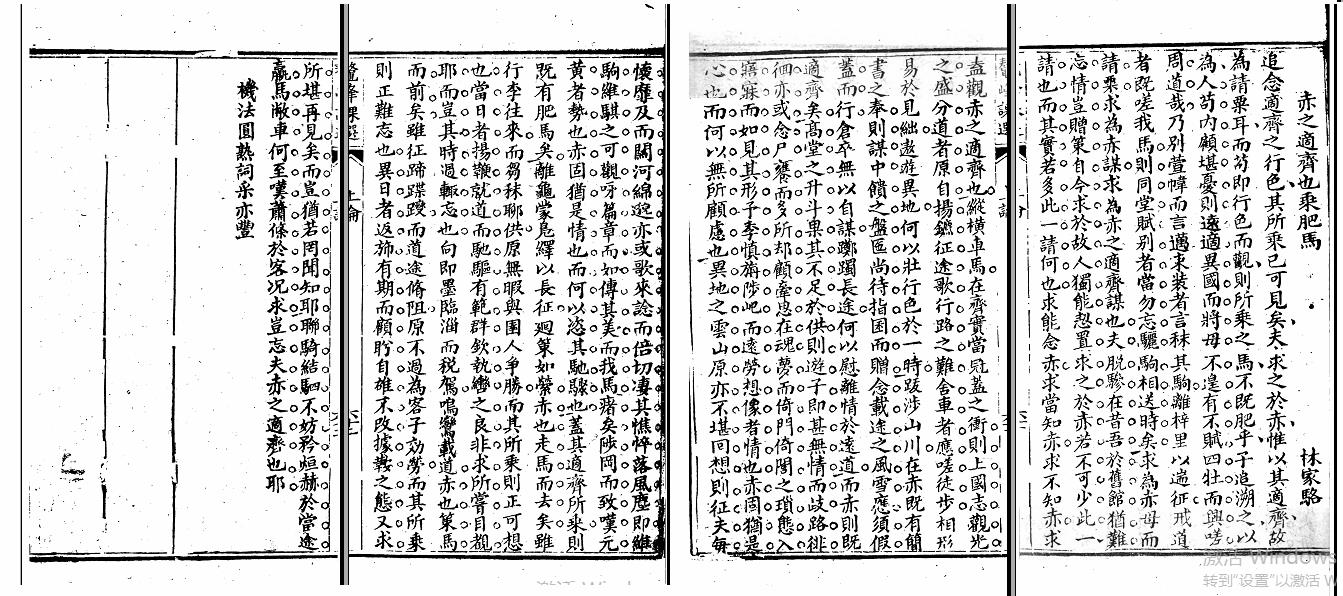 赤之適齊也乘肥馬 林家駱
追念適齊之行色其所乘已可見矣夫求之於赤惟以其適齊故
為請粟耳而苟即行色而觀則所乘之馬不既肥乎子追溯之以
為人苟内顧堪憂則遠適異國而將母不遑有不賦四牡而興嗟
周道哉乃別萱幃而言邁求裝者言秣其駒離梓里以遄征戒道
者既嗟我馬則同堂賦别者當勿忘驪駒相送時矣求為赤母而
請粟求為赤謀求為赤之適齊謀也夫脱驂在昔吾於舊館猶難
忘情豈贈策自今求於故人獨能恝置求之於赤若不可少此一
請也而其實若多此一請何也求能念赤求當知赤求不知赤求
盍觀赤之適齊也縱橫車馬在齊實當冠蓋之衝則上國志觀光
之盛分道者原自揚鑣征途歌行路之難舍車者應嗟徒步相形
易於見絀遨遊異地何以壯行色於一時跋涉山川在赤既有簡
書之奉則謀中饋之盤匜尚待指囷而贈念載途之風雪應須假
蓋而行倉卒無以自謀躑躅長途何以慰離情於遠道而赤則既
適齊矣高堂之升斗果其不足於供則遊子即甚無情而歧路徘
徊亦或念尸饔而多所却顧牽思在魂夢而倚門倚閭之瑣態入
寤寐而如見其形子季慎旃陟屺而遠勞想像者情也赤固猶是
心也而何以無所顧慮也異地之雲山原亦不堪回想則征夫每
懷靡及而關河綿邈亦或歌來諗而倍切凄其憔悴落風塵即維
駒維騏之可觀呼篇章而如傳其美而我馬瘏矣陟岡而致嘆元
黄者勢也赤固猶是情也而何以恣其馳驟也蓋其適齊所乘則
既有肥馬矣離龜蒙鳧繹以長征廻策如縈赤也走馬而去矣雖
行李往來而芻秣聊供原無暇與圉人争勝而其所乘則正可想
也當日者揚鞭就道而馳驅有範群欽執轡之良非求所嘗目覩
耶而豈其時過輒忘也向即墨臨淄而税駕鳴鸞載道赤也策馬
而前矣雖征蹄蹀躞而道途脩阻原不過為客子効勞而其所乘
則正難忘也異日者返斾有期而顧盻自雄不改據鞍之態又求
所堪再見矣而豈猶若罔聞知耶聯騎結駟不妨矜烜赫於當途
羸馬敝車何至嘆蕭條於客況求豈忘夫赤之適齊也耶
機法圓熟詞采亦豐
鰲峰課選
上論
激活 Windows
转到"设置"以激活 W